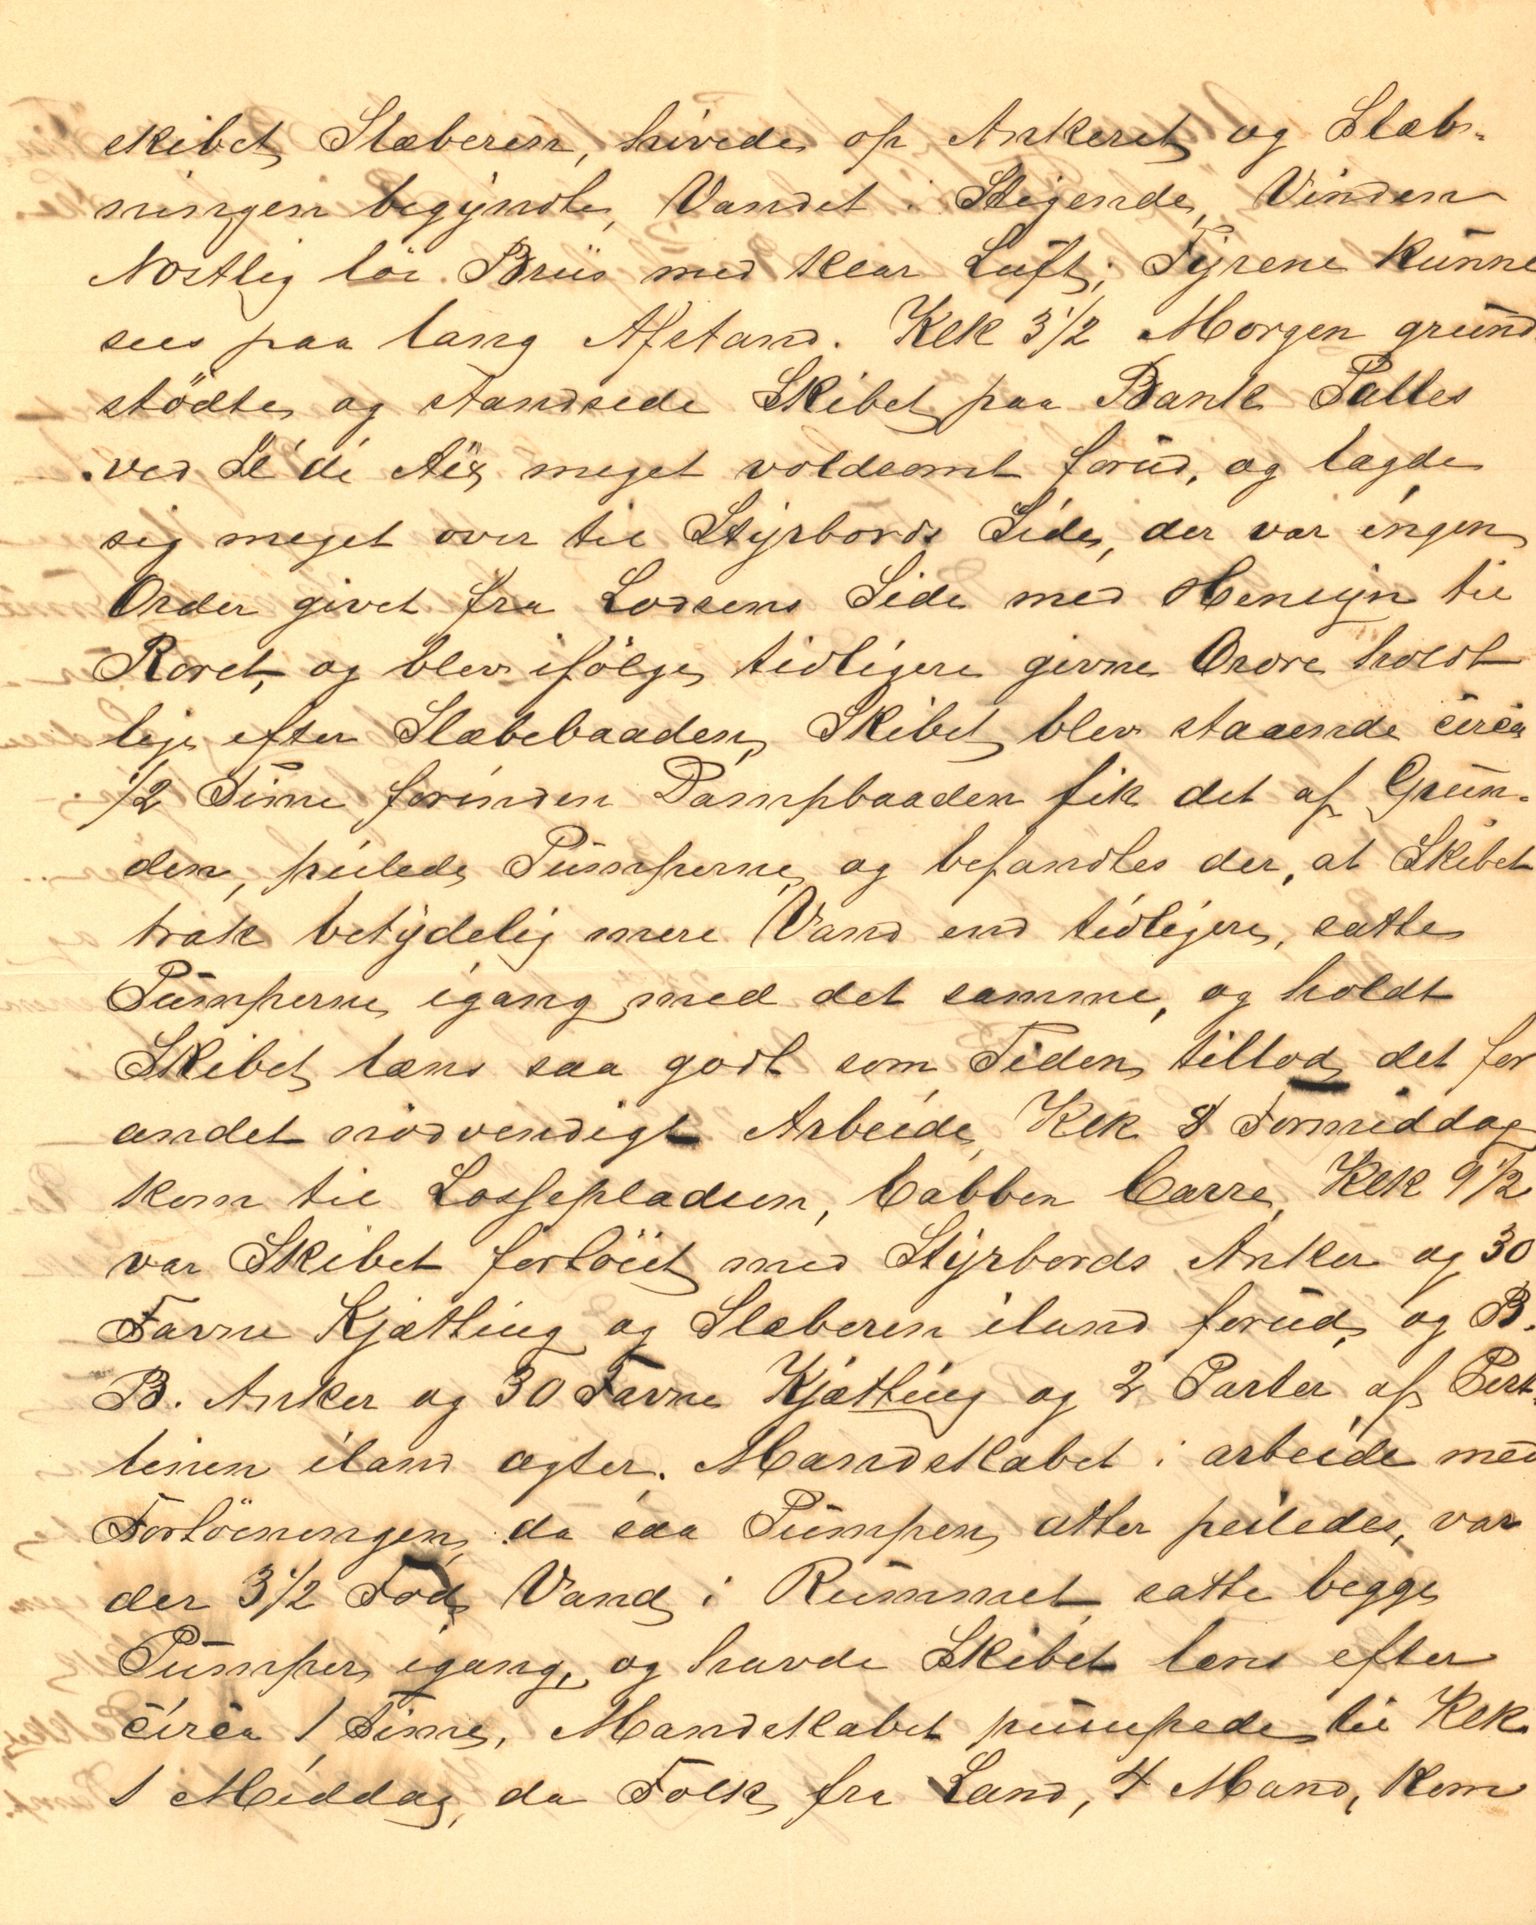 skibet Slæberen, hivede op Ankeret og Slæb-
ningen begyndte, Vandet i Stigende, Vinden
Nostlig löi Briis med klar Luft; Fyrene kunne
sees paa lang Afstand. Klk 3 1/2 Morgen grund-
stödte og standsede Skibet paa Bank Palles
ved Il de Aix meget voldsomt forud, og lagde
sig meget over til Styrbords Side, der var ingen
Order givet fra Lodsens Side med Hensyn til
Roret, og blev ifölge tidligere givne Ordre holdt
lige efter Slæbebaaden, Skibet blev staaende circa
1/2 Time forinden Dampbaaden fik det af Grun-
den, peilede Pumperne og befandtes der, at Skibet
trak betydelig mere Vand end tidligere, satte
Pumperne igang med det samme, og holdt
Skibet læns saa godt som Tiden tillod det for
andet nödvendigt Arbeide, Klk 8 Formiddag
kom til Lossepladsen, Cabben Carre, Klk 9 1/2
var Skibet fortöiet med Styrbords Anker og 30
Favne Kjætting og Slæberen iland forud, og B.
B. Anker og 30 Favne Kjætting og 2 Parter af Pert-
linen iland agter. Mandskabet i arbeide med
Fortöiningen, da saa Pumpen atter peiledes, var
der 3 1/2 Fod Vand i Rummet, satte begge
Pumper igang, og havde Skibet læns efter
circa 1 Time, Mandskabet pumpede til Klk
1 Middag, da Folk fra Land, 4 Mand, kom